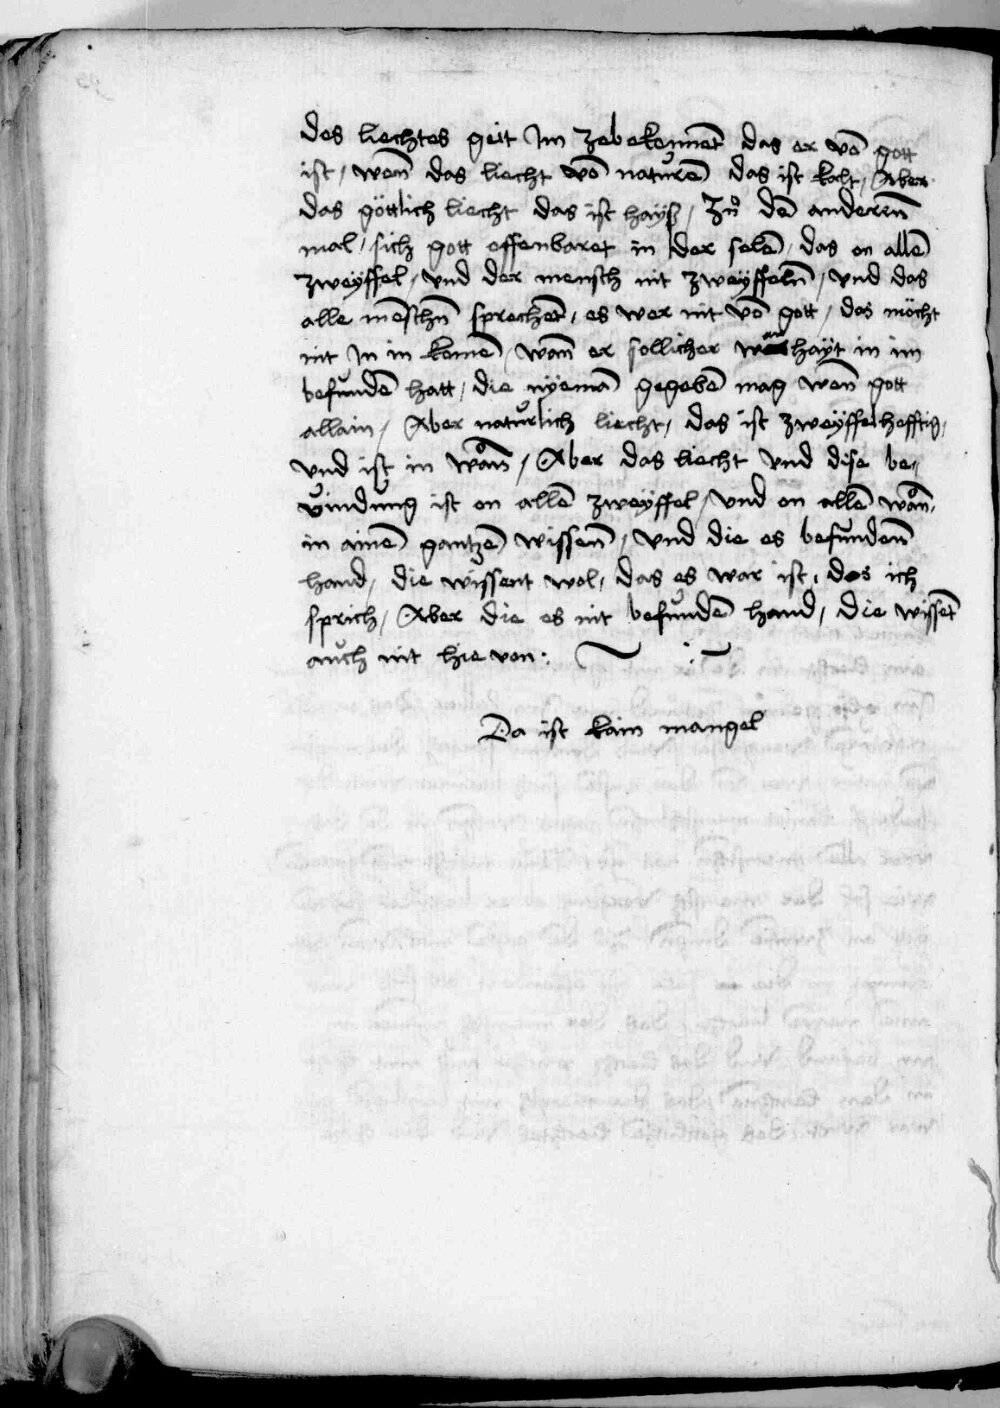 des liechtes geit Im zebekennēt das er vō gott
ist / wen̄ das liecht vō naturē das ist kalt / Aber
das göttlich liecht das ist hayß / Zů dē anderen̄
mal / sich gott offenbaret in der selē / das on allē
zweÿffel / vnd der mensch nit zweÿffeln̄ / vnd das
alle menschn̄ sprechēt / es wer nit vō gott / das möcht
nit In in komē / wan̄ er sollicher warhaÿt in im
befundē hatt / die nÿemā gegebē mag wen̄ gott
allain / Aber naturlich liecht / das ist zweÿffelhefftig /
vnd ist in wån̄ / Aber das liecht vnd dise be /
vindung ist on allē zweÿffel / vnd on allē wån̄ /
in ainē gantzē wissen̄ / vnd die es befunden̄
hand / die wissent wol / das es war ist / das ich
sprich / Aber die es nit befundē hand / die wissēt
auch nit hie von :
Da ist kain mangel